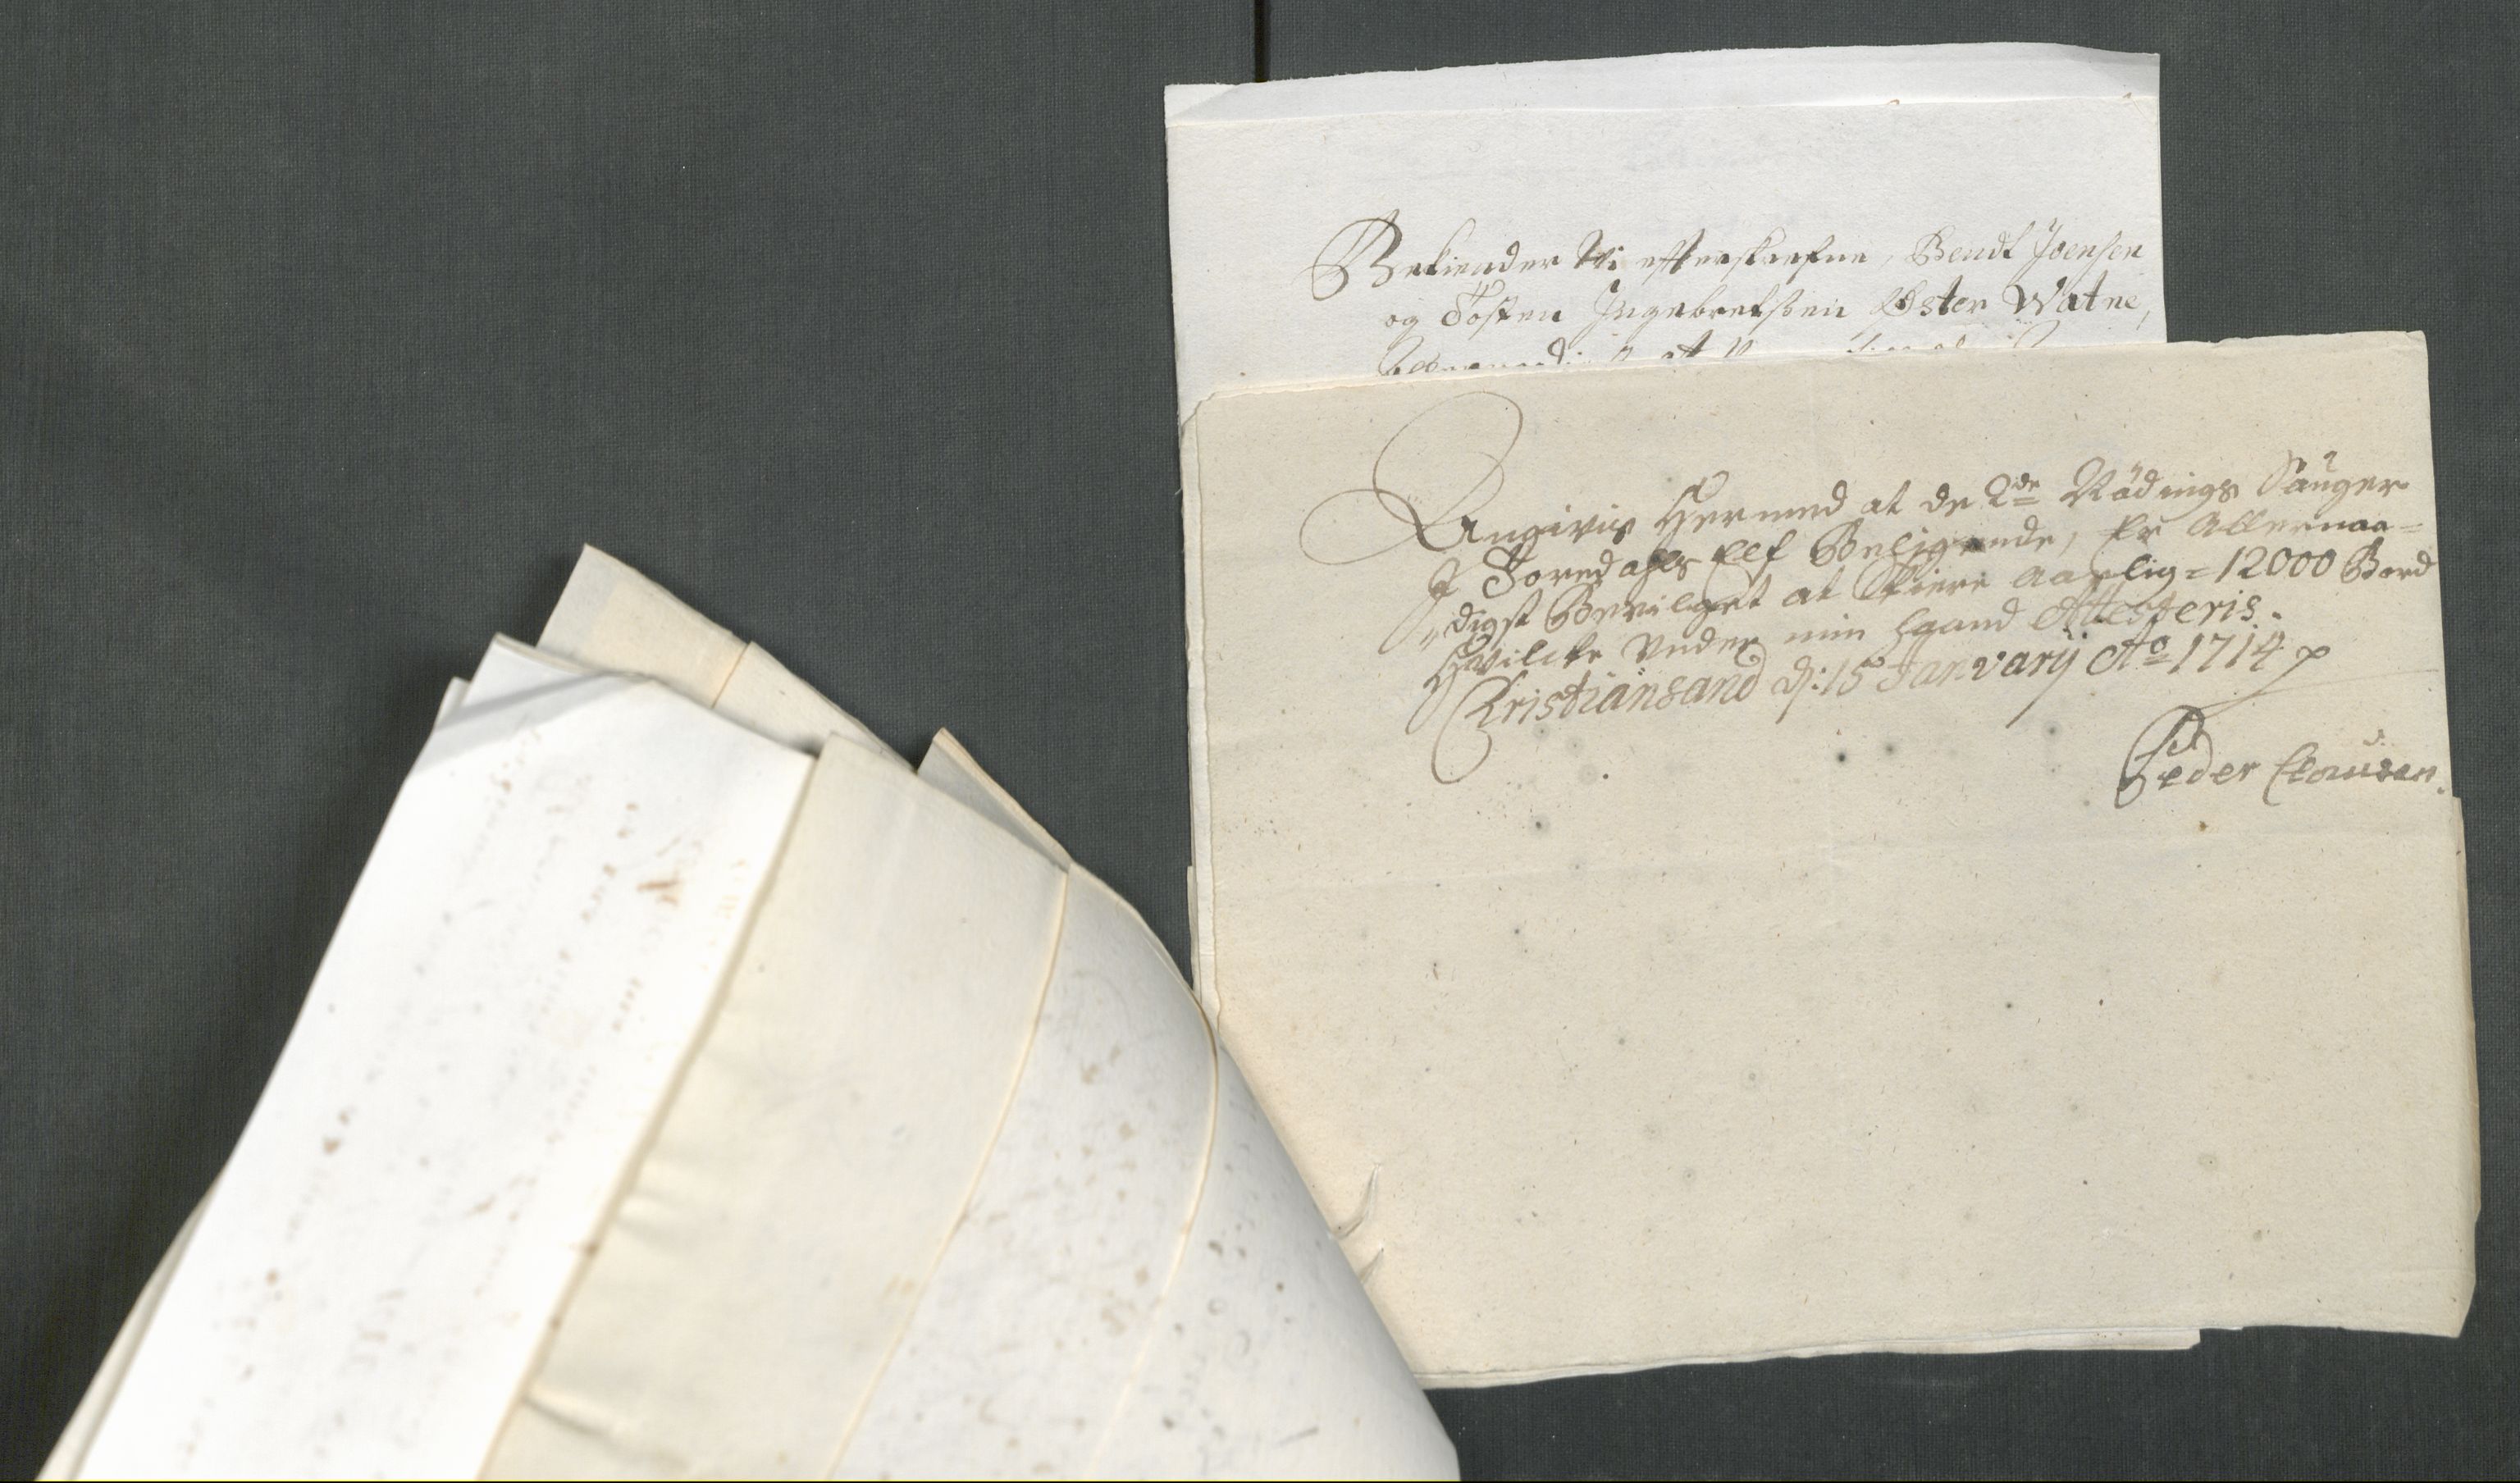 Bekiender Wi efterskrefne, Bendt Joensen
og Tosten Ingebretsen Øster Watne,
Angivis Hermed at de 2de Rödings Sauger
I Torredahls Elf Beligende, Er Allernaa=
digst Bevilget at skiere Aarlig = 12000 Bord
Hvilcke Under min Haand Attesteris.
Christiansand d: 15 Januarij Ao 1714
Peder Clausen.